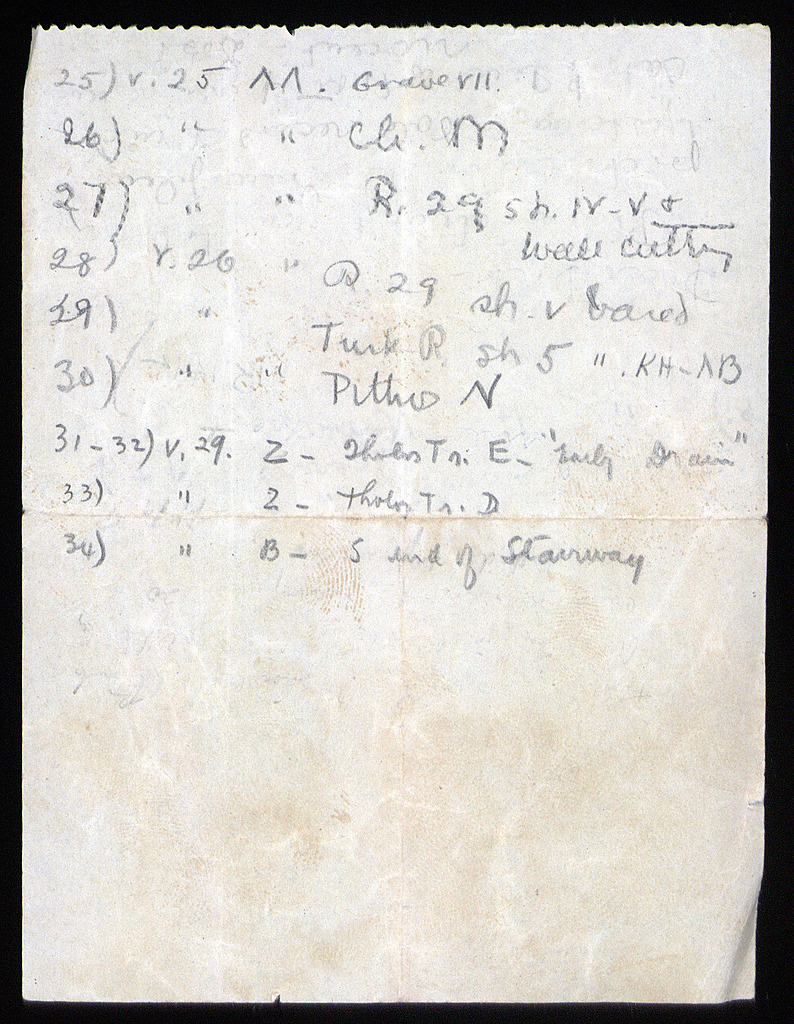 25) V. 25 ΛΛ. Grave VII.
26) " " Ch. M
27) " " R. 29 sh. IV-V &
wall cutting
28) V. 26 " R. 29 sh. V
29) " Turk R. sh 5 ". KH-ΛB
30) " " Pithos N
31-32) V. 29. Z - Tholos Tr. E - "Early Drain"
33) " Z - tholos Tr. D
34) " B - S end of Stairway